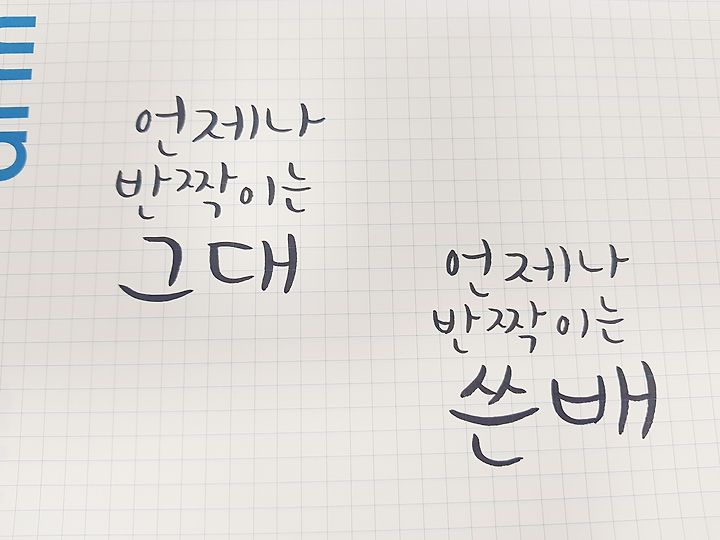 언제나
반짝이는
그대
언제나
반짝이는
쓴배